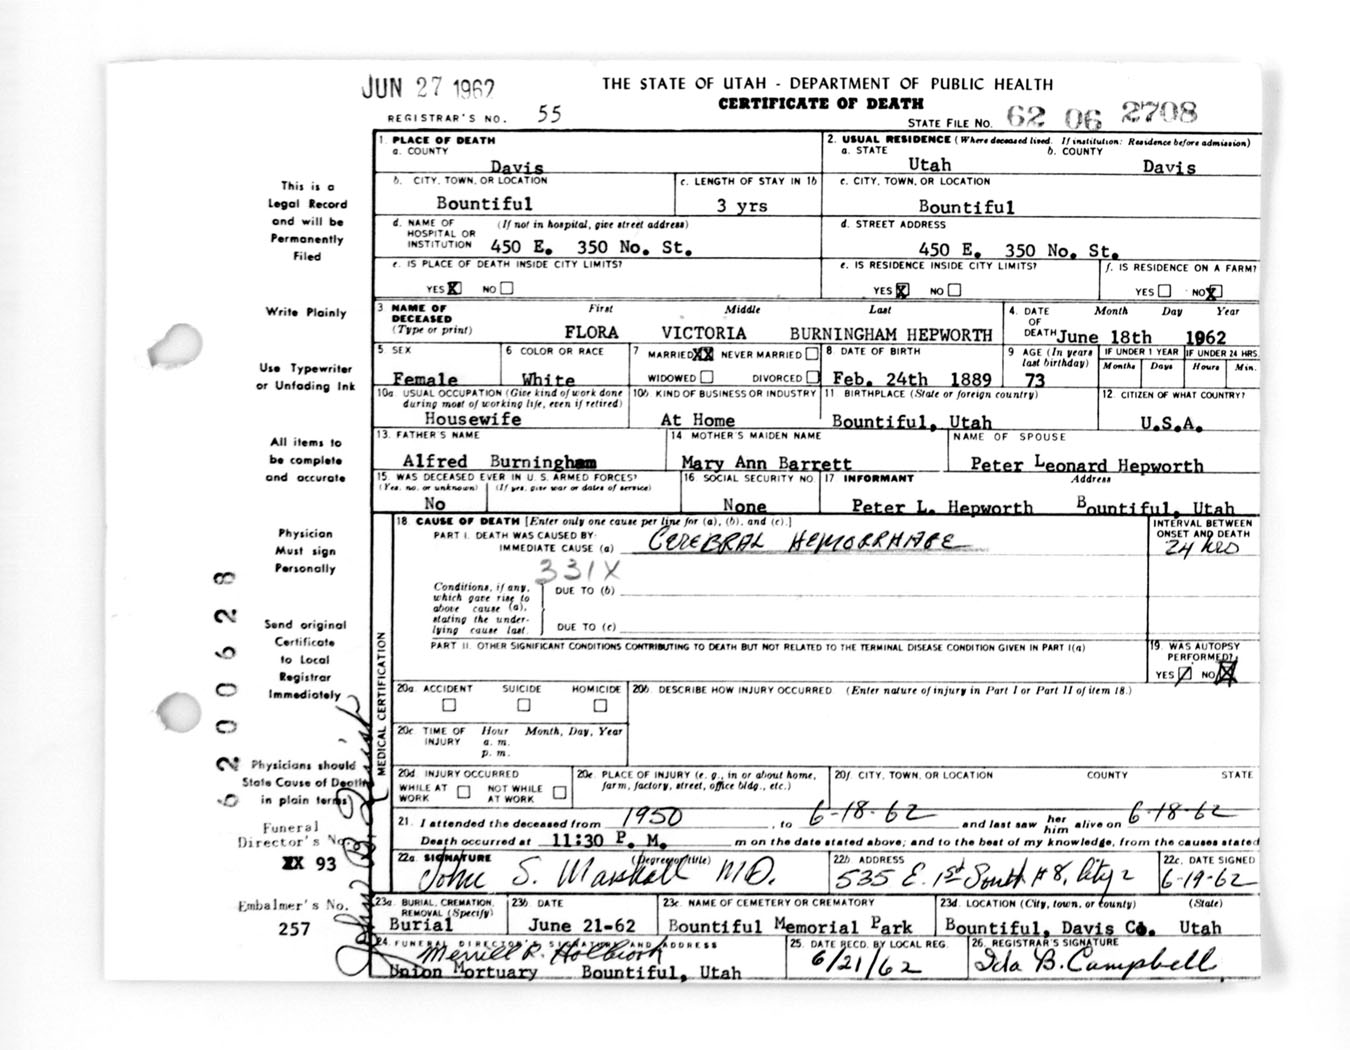 JUN 27 1962
THE STATE OF UTAH - DEPARTMENT OF PUBLIC HEALTH
CERTIFICATE OF DEATH
REGISTRAR'S NO. 55
STATE FILE NO. 62 06 2708
This is a
Legal Record
and will be
Permanently
Filed
Write Plainly
Use Typewriter
or Unfading Ink
All items to
be complete
and accurate
Physician
Must sign
Personally
Send original
Certificate
to Local
Registrar
Immediately
Physicians should
State Cause of Death
in plain terms
Funeral
Director's No.
XX 93
Embalmer's No.
257
5200628
1. PLACE OF DEATH
a. COUNTY
Davis
2. USUAL RESIDENCE (Where deceased lived. If institution: Residence before admission)
a. STATE b. COUNTY
Utah Davis
b. CITY, TOWN, OR LOCATION c. LENGTH OF STAY IN 1b
Bountiful 3 yrs
c. CITY, TOWN, OR LOCATION
Bountiful
d. NAME OF (If not in hospital, give street address)
HOSPITAL OR
INSTITUTION 450 E. 350 No. St.
d. STREET ADDRESS
450 E. 350 No. St.
e. IS PLACE OF DEATH INSIDE CITY LIMITS?
YES X NO
e. IS RESIDENCE INSIDE CITY LIMITS? f. IS RESIDENCE ON A FARM?
YES X NO YES NO X
3 NAME OF First Middle Last
DECEASED
(Type or print) FLORA VICTORIA BURNINGHAM HEPWORTH
4. DATE Month Day Year
OF
DEATH June 18th 1962
5. SEX 6 COLOR OR RACE 7 MARRIED XX NEVER MARRIED
WIDOWED DIVORCED
8 DATE OF BIRTH 9 AGE (In years last birthday) IF UNDER 1 YEAR IF UNDER 24 HRS.
Months Days Hours Min.
Female White Feb. 24th 1889 73
10a. USUAL OCCUPATION (Give kind of work done
during most of working life, even if retired)
Housewife
10b. KIND OF BUSINESS OR INDUSTRY
At Home
11 BIRTHPLACE (State or foreign country)
Bountiful, Utah
12. CITIZEN OF WHAT COUNTRY?
U.S.A.
13. FATHER'S NAME 14 MOTHER'S MAIDEN NAME NAME OF SPOUSE
Alfred Burningham Mary Ann Barrett Peter Leonard Hepworth
15. WAS DECEASED EVER IN U. S. ARMED FORCES?
(Yes, no, or unknown) (If yes, give war or dates of service)
No
16. SOCIAL SECURITY NO.
None
17 INFORMANT Address
Peter L. Hepworth Bountiful, Utah
18 CAUSE OF DEATH [Enter only one cause per line for (a), (b), and (c).]
PART I. DEATH WAS CAUSED BY:
IMMEDIATE CAUSE (a) CEREBRAL HEMORRHAGE
INTERVAL BETWEEN
ONSET AND DEATH
24 hrs
331X
Conditions, if any,
which gave rise to
above cause (a),
stating the under-
lying cause last.
DUE TO (b)
DUE TO (c)
PART II. OTHER SIGNIFICANT CONDITIONS CONTRIBUTING TO DEATH BUT NOT RELATED TO THE TERMINAL DISEASE CONDITION GIVEN IN PART I(a)
19. WAS AUTOPSY
PERFORMED?
YES NO X
MEDICAL CERTIFICATION
20a. ACCIDENT SUICIDE HOMICIDE
20b. DESCRIBE HOW INJURY OCCURRED (Enter nature of injury in Part I or Part II of item 18.)
20c TIME OF Hour Month, Day, Year
INJURY a. m.
p. m.
20d. INJURY OCCURRED
WHILE AT WORK NOT WHILE AT WORK
20e. PLACE OF INJURY (e. g., in or about home,
farm, factory, street, office bldg., etc.)
20f. CITY, TOWN, OR LOCATION COUNTY STATE
21. I attended the deceased from 1950, to 6-18-62 and last saw her him alive on 6-18-62
Death occurred at 11:30 P. M. m on the date stated above; and to the best of my knowledge, from the causes stated
22a. SIGNATURE (Degree or title)
John S. Marshall MD.
22b. ADDRESS
535 E. 1st South #8, City 2
22c. DATE SIGNED
6-19-62
23a. BURIAL, CREMATION,
REMOVAL (Specify)
Burial
23b DATE
June 21-62
23c. NAME OF CEMETERY OR CREMATORY
Bountiful Memorial Park
23d. LOCATION (City, town, or county) (State)
Bountiful, Davis Co. Utah
24. FUNERAL DIRECTOR'S SIGNATURE AND ADDRESS
Merrill R. Holbrook
Union Mortuary Bountiful, Utah
25. DATE RECD. BY LOCAL REG.
6/21/62
26. REGISTRAR'S SIGNATURE
Ida B. Campbell